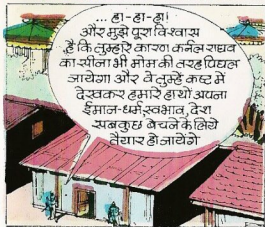 ... हा-हा-हा!
और मुझे पूरा विश्वास
है कि तुम्हारे कारण कर्नल राघव
का सीना भी मोम की तरह पिघल
जायेगा और वे तुम्हें कष्ट में
देखकर हमारे हाथों अपना
ईमान-धर्म, स्वभाव, देश
सबकुछ बेचने के लिये
तैयार हो जायेंगे